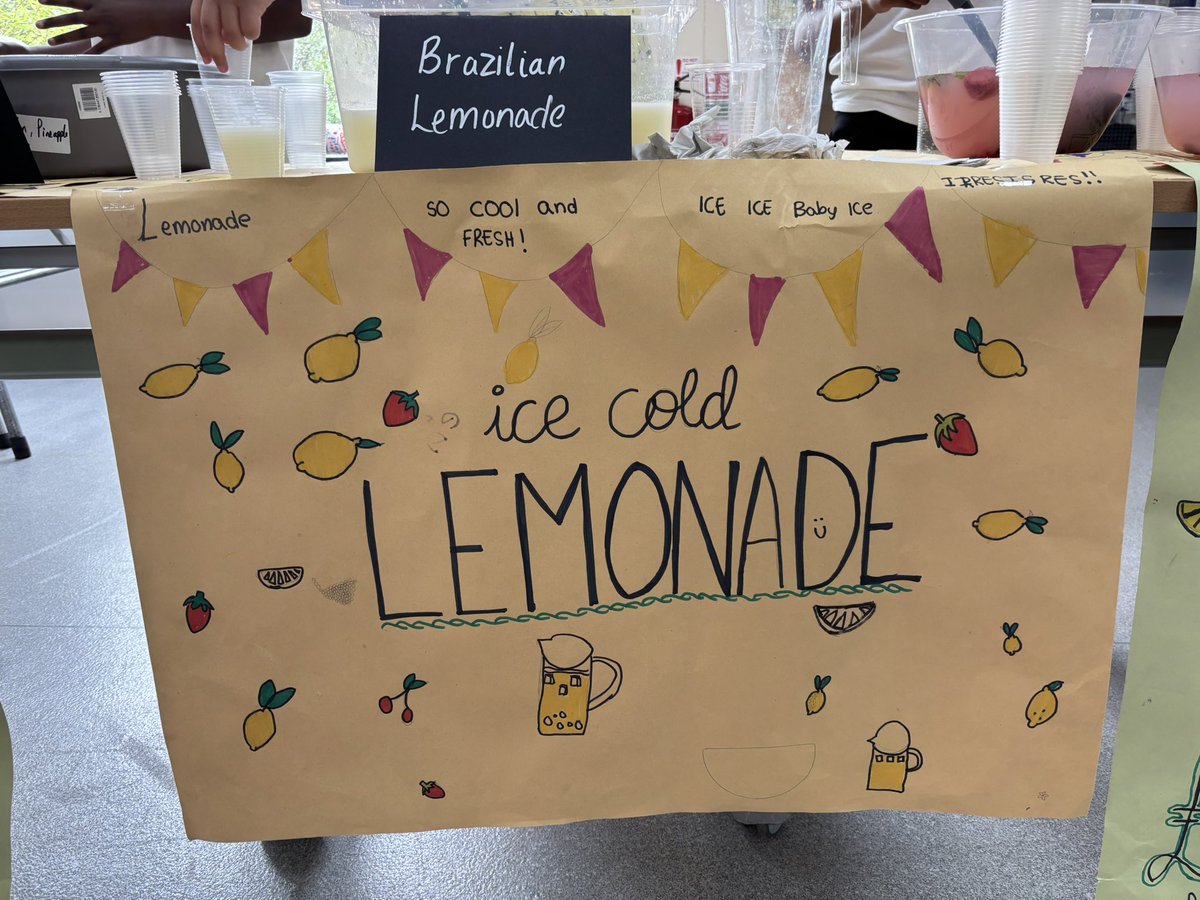 Brazilian
Lemonade
, Pineapple
Lemonade
SO COOl and
FRESH!
ICE ICE Baby Ice
ice cold
LEMONADE